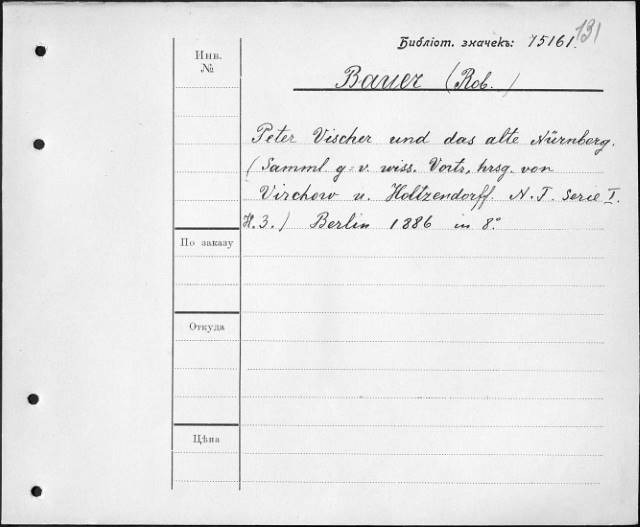 131
Библіот. значекъ: 15161.
Инв.
№
Bauer (Rob.)
Peter Vischer und das alte Nürnberg.
(Samml. g. v. wiss. Vortr, hrsg. von
Virchow u. Holtzendorff. N. F. Serie I.
H. 3.) Berlin 1886 in 8°.
По заказу
Откуда
Цѣна